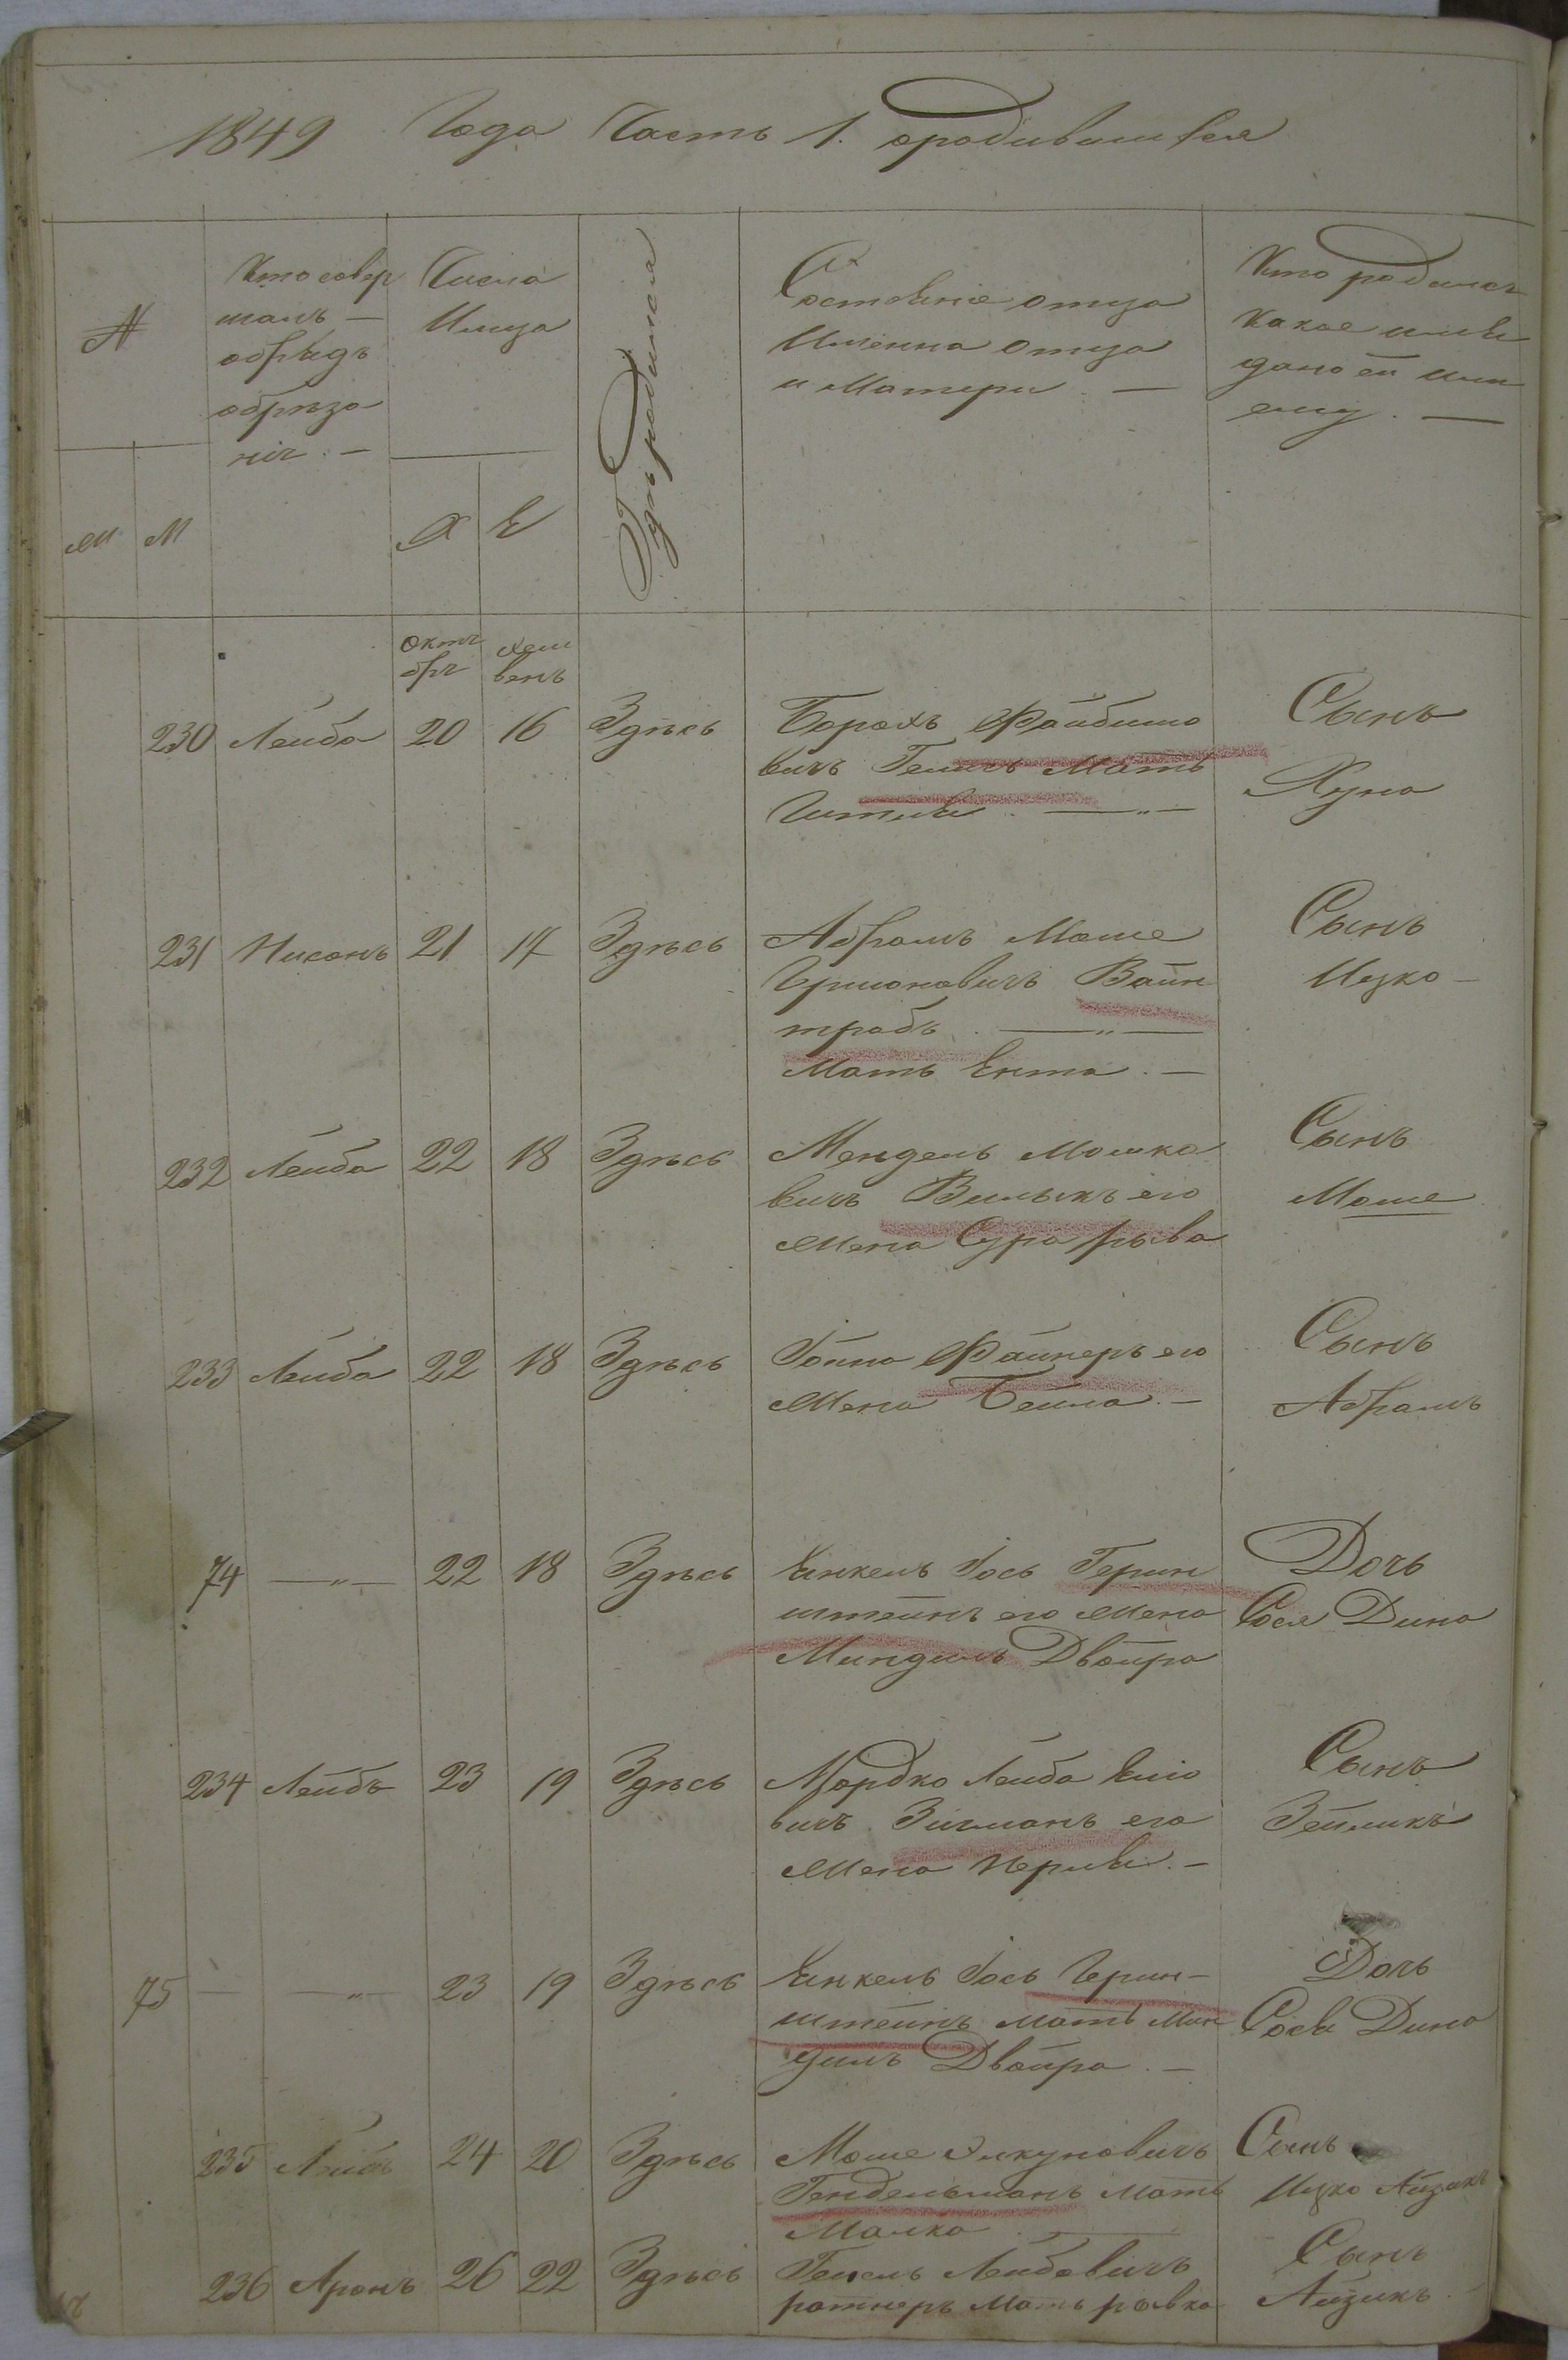 1849 Года Часть 1. ородившихся
№
Кто совер
шалъ —
обрядъ
обреза
нія. —
Числа
Мцца
Гдѣ родился
Состояніе отца
Имена отца
и Матери. —
Кто родился
какое имя
дано ей или
ему. —
М М
Х Е
октя
бря
хеш
венъ
230 Лейба 20 16 Здѣсь Борахъ Файбишо
вичъ Мать
— „ —
Сынъ
Хуна
231 Нисонъ 21 17 Здѣсь Абрамъ Моше
Гершоновичъ Вайн
трабъ. — „ —
Мать Ента. —
Сынъ
Ицко —
232 Лейба 22 18 Здѣсь Мендель Мошко
вичъ его
жена Сура рыва
Сынъ
Моше
233 Лейба 22 18 Здѣсь Іойна Файнеръ его
жена Бейла. —
Сынъ
Абрамъ
74 — „ — 22 18 Здѣсь Янкель Іось Герин
штейнъ его жена
Миндиль Двойра
Дочь
Сося Дина
234 Лейбъ 23 19 Здѣсь Мордко Лейба Еліо
вичъ Зигманъ его
жена Перля. —
Сынъ
Зейликъ
75 — — „ — 23 19 Здѣсь Янкель Іось Герин-
штейнъ мать Мин
диль Двойра. —
Дочь
Сося Дина
235 Лейбъ 24 20 Здѣсь Моше
Гендельманъ Мать
Малка. —
Сынъ
Ицко Айзикъ
236 Аронъ 26 22 Здѣсь Лейбовичъ
ратнеръ Мать рывка
Сынъ
Айзикъ